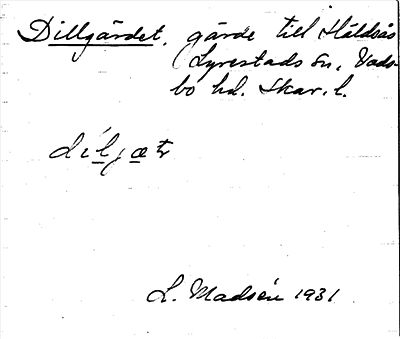 Dillgärdet, gärde till Håldsås
(Lyrestads sn, Vads-
bo hd. Skar. l.
L. Madsén 1931